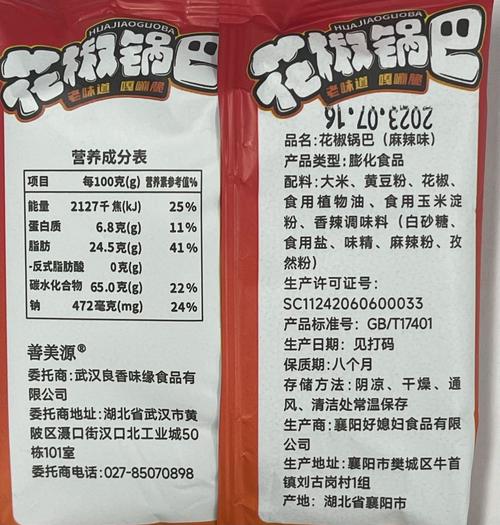 HUAJIAOGUOBA
花椒锅巴
老味道 嘎嘣脆
营养成分表
项目 每100克(g) 营养素参考值%
能量 2127千焦(kJ) 25%
蛋白质 6.8克(g) 11%
脂肪 24.5克(g) 41%
-反式脂肪酸 0克(g)
碳水化合物 65.0克(g) 22%
钠 472毫克(mg) 24%
善美源®
委托商:武汉良香味缘食品有
限公司
委托商地址:湖北省武汉市黄
陂区滠口街汉口北工业城50
栋101室
委托商电话:027-85070898
HUAJIAOGUOBA
花椒锅巴
老味道 嘎嘣脆
2023.07.16
品名:花椒锅巴（麻辣味）
产品类型:膨化食品
配料:大米、黄豆粉、花椒、
食用植物油、食用玉米淀
粉、香辣调味料（白砂糖、
食用盐、味精、麻辣粉、孜
然粉）
生产许可证号:
SC11242060600033
产品标准号: GB/T17401
生产日期: 见打码
保质期:八个月
存储方法:阴凉、干燥、通
风、清洁处常温保存
生产商:襄阳好媳妇食品有限
公司
生产地址:襄阳市樊城区牛首
镇刘古岗村1组
产地: 湖北省襄阳市